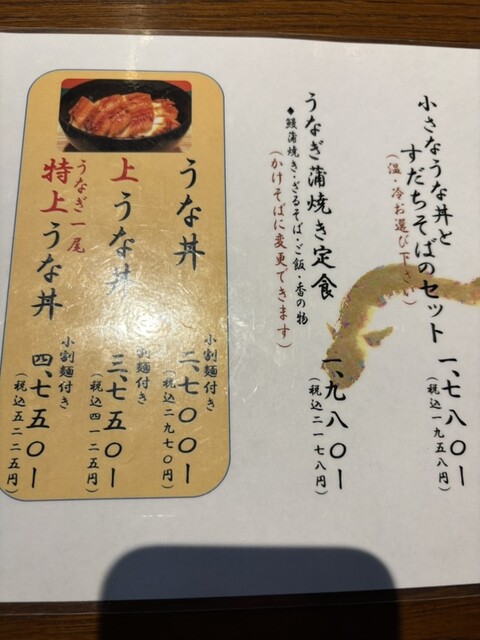 小さなうな丼と
すだちそばのセット 一、七八〇ー
（温・冷お選び下さい）
（税込一九五八円）
うなぎ蒲焼き定食 一、九八〇ー
◆鰻蒲焼き・ざるそば・ご飯・香の物
（かけそばに変更できます）
（税込二一七八円）
うな丼 二、七〇〇ー
小割麺付き
（税込二九七〇円）
上うな丼 三、七五〇ー
割麺付き
（税込四一二五円）
うなぎ一尾
特上うな丼 四、七五〇ー
小割麺付き
（税込五二二五円）